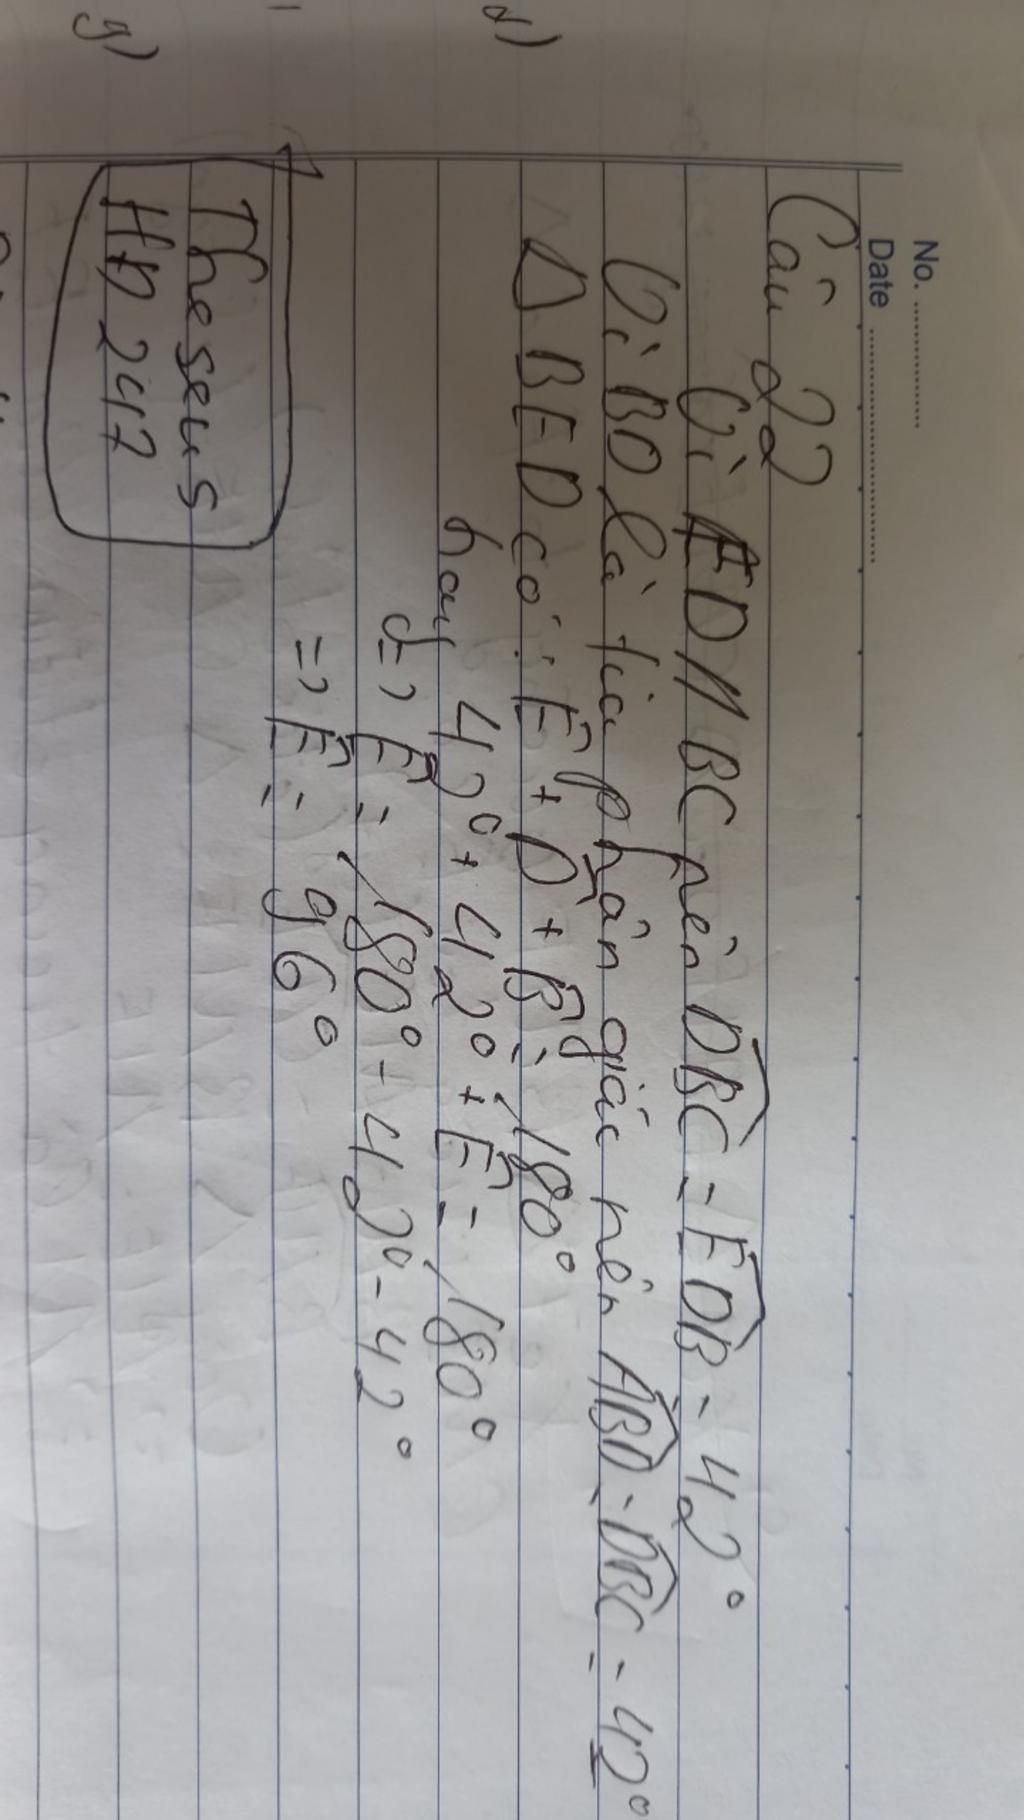 No. ............
Date ........................
Câu 22
Vì ED // BC nên DBC = EDB = 42°
Vì BD là tia phân giác nên ABD = DBC = 42°
Δ BED có: Ê + D̂ + B̂ = 180°
hay 42° + 42° + Ê = 180°
=> Ê = 180° - 42° - 42°
=> Ê = 96°
Theseus
HD 247
d)
g)